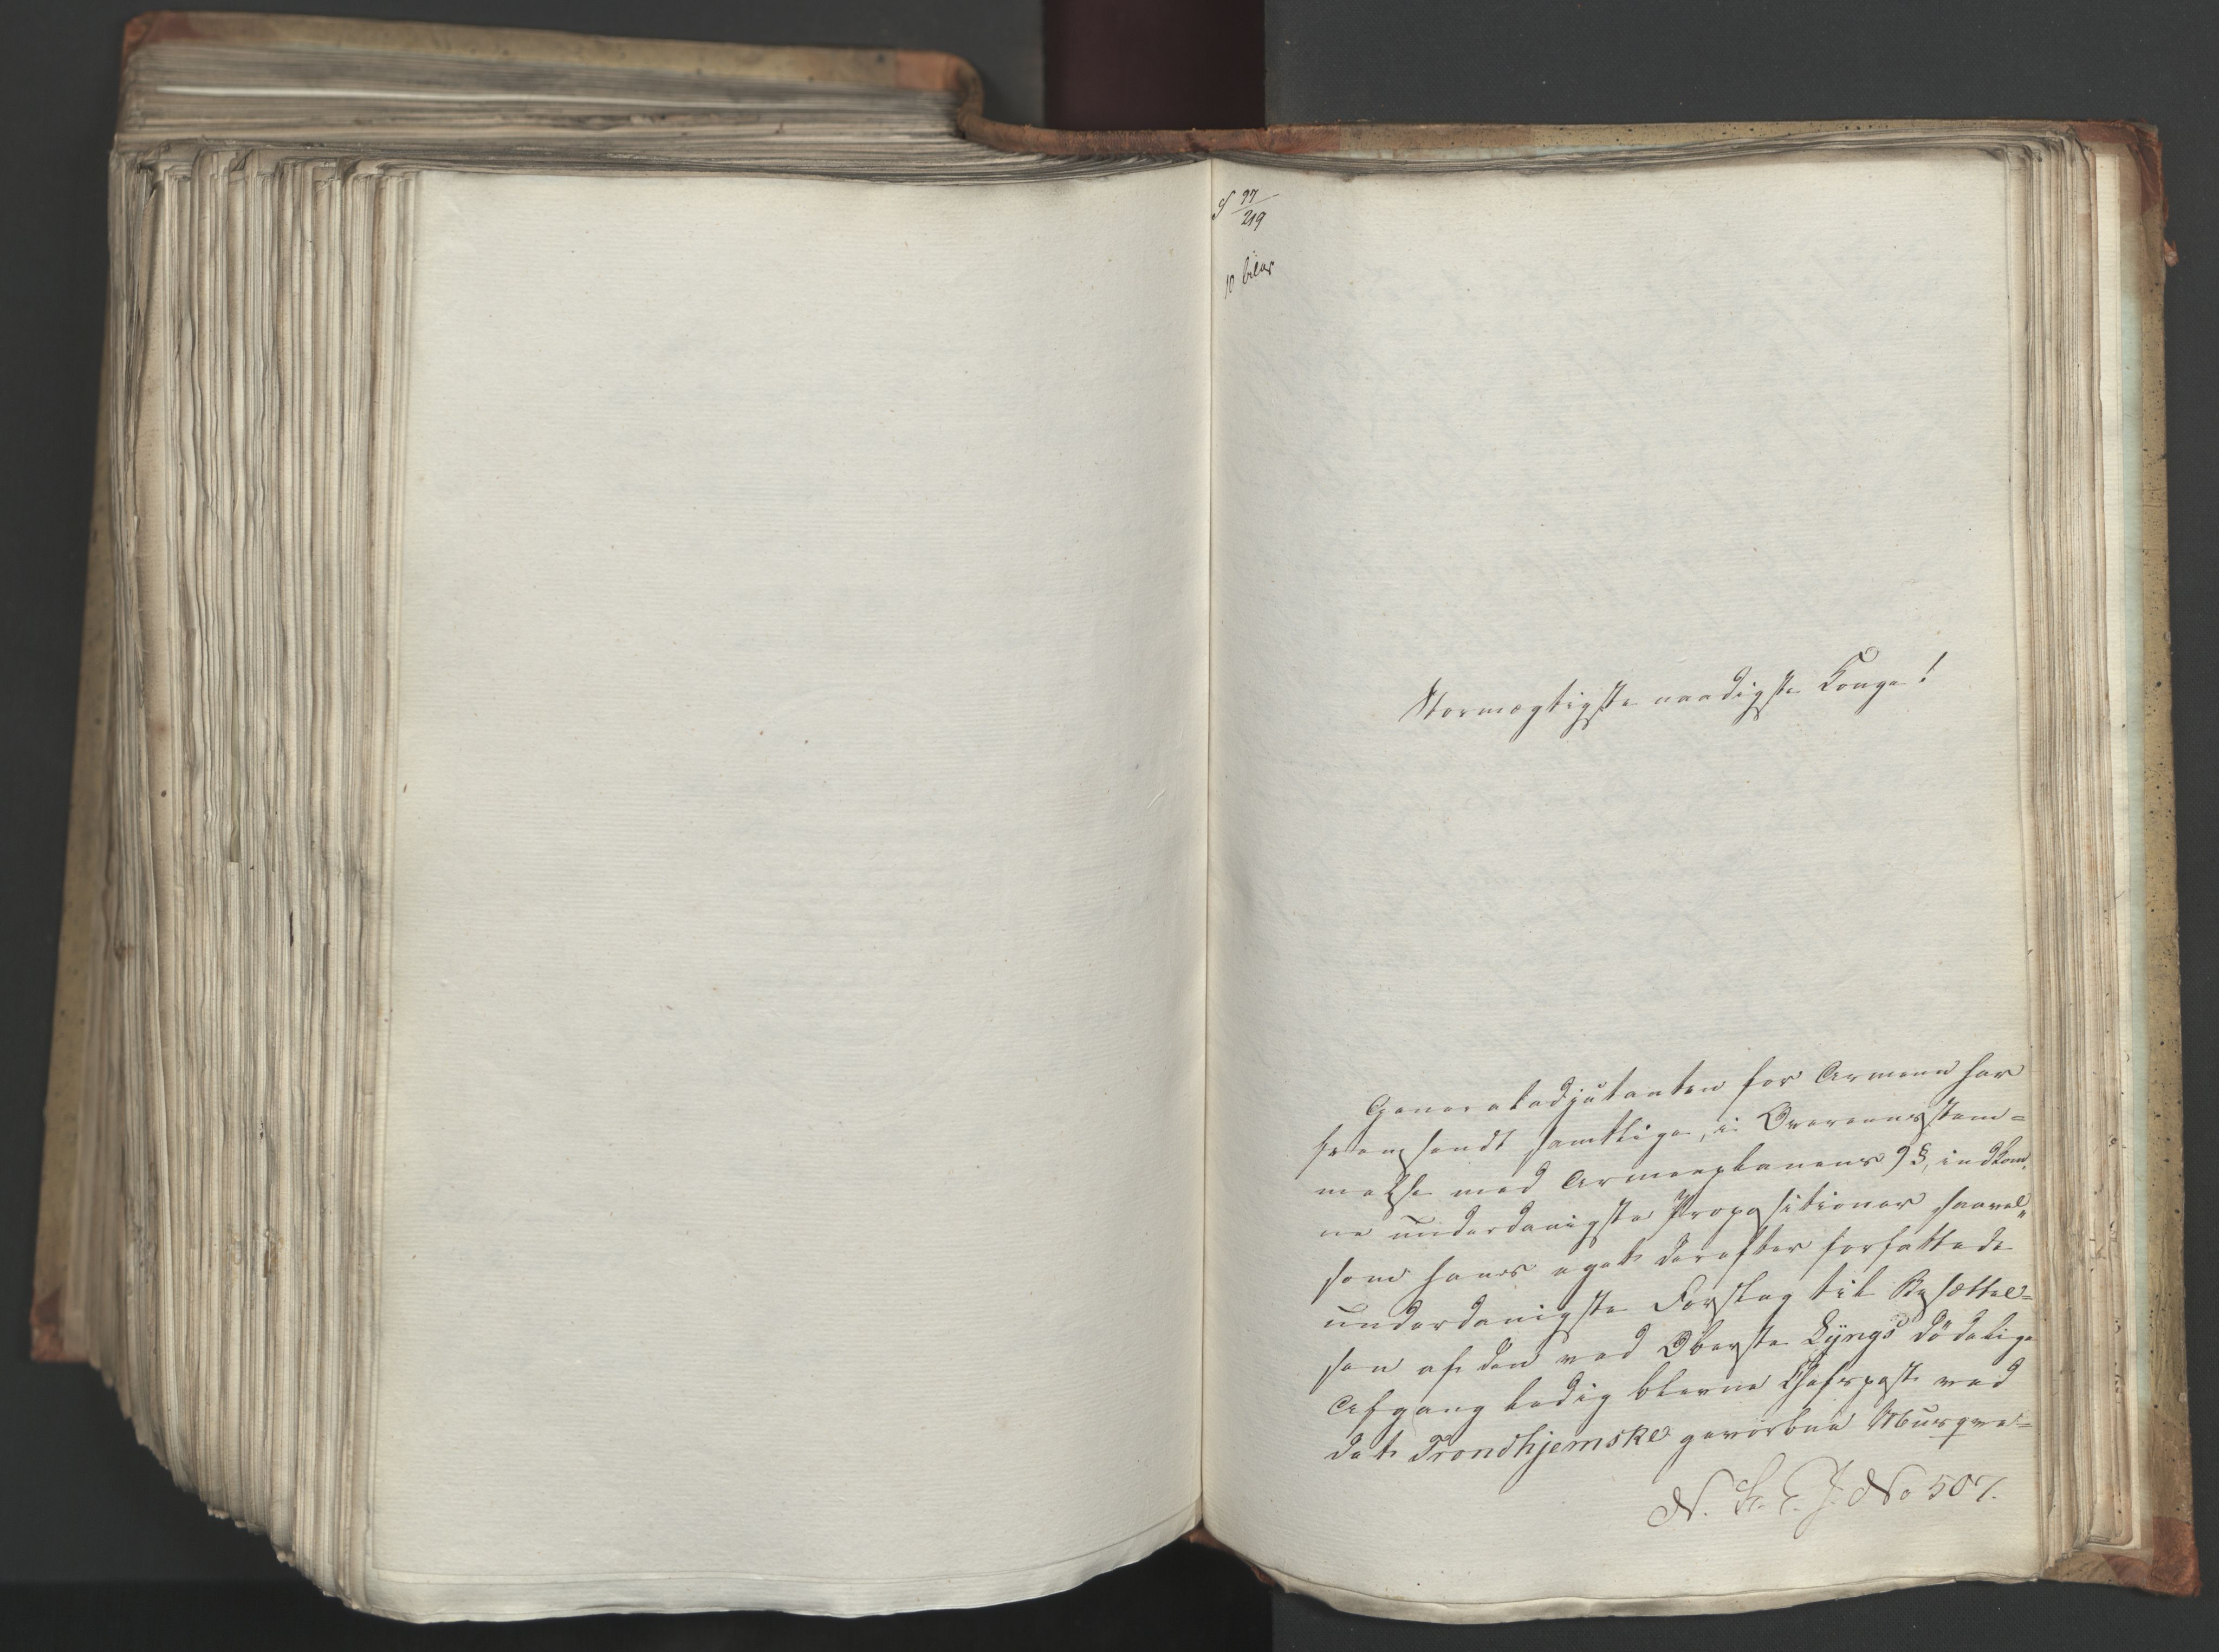 S 97/219
10 bilar
Stormægtigste naadigste Konge!
Generaladjutanten for Armeen har
fremsendt samtlige, i Overeensstem=
melse med Armeeplanens 9 §, indkom„
ne underdanigste Propositioner saavel„
som hans eget derefter forfattede
underdanigste Forslag til Besættel=
sen af den ved Oberste Lÿngs dödelige
Afgang ledig blevne Chefspost ved
det Trondhjemske gevorbne Musqve=
N. No 507.